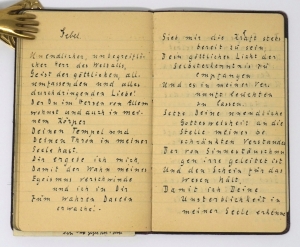 Gebet
Unendlicher, unbegreiflicher
Herr des Weltalls,
Geist der göttlichen, all-
umfassenden und alles
durchdringenden Liebe!
Der Du im Herzen von Allem
wohnst und auch in mei-
nem Körper
Deinen Tempel und
Deinen Thron in meiner
Seele hast.
Dir ergebe ich mich,
Damit der Wahn meines
Egoismus verschwinde
und ich in Dir
Zum wahren Dasein
erwache.
Gieb mir die Kraft stets
bereit zu sein,
Dein göttliches Licht der
Selbsterkenntnis zu
empfangen
Und es in meiner Ver-
nunft leuchten
zu lassen.
Setze Deine unendliche
Gottesweisheit an die
Stelle meines be-
schränkten Verstandes
Der von Sinnestäuschun-
gen irre geleitet ist
Und den Schein für das
Wesen hält.
Damit ich Deine
Unsterblichkeit in
meiner Seele erkenne